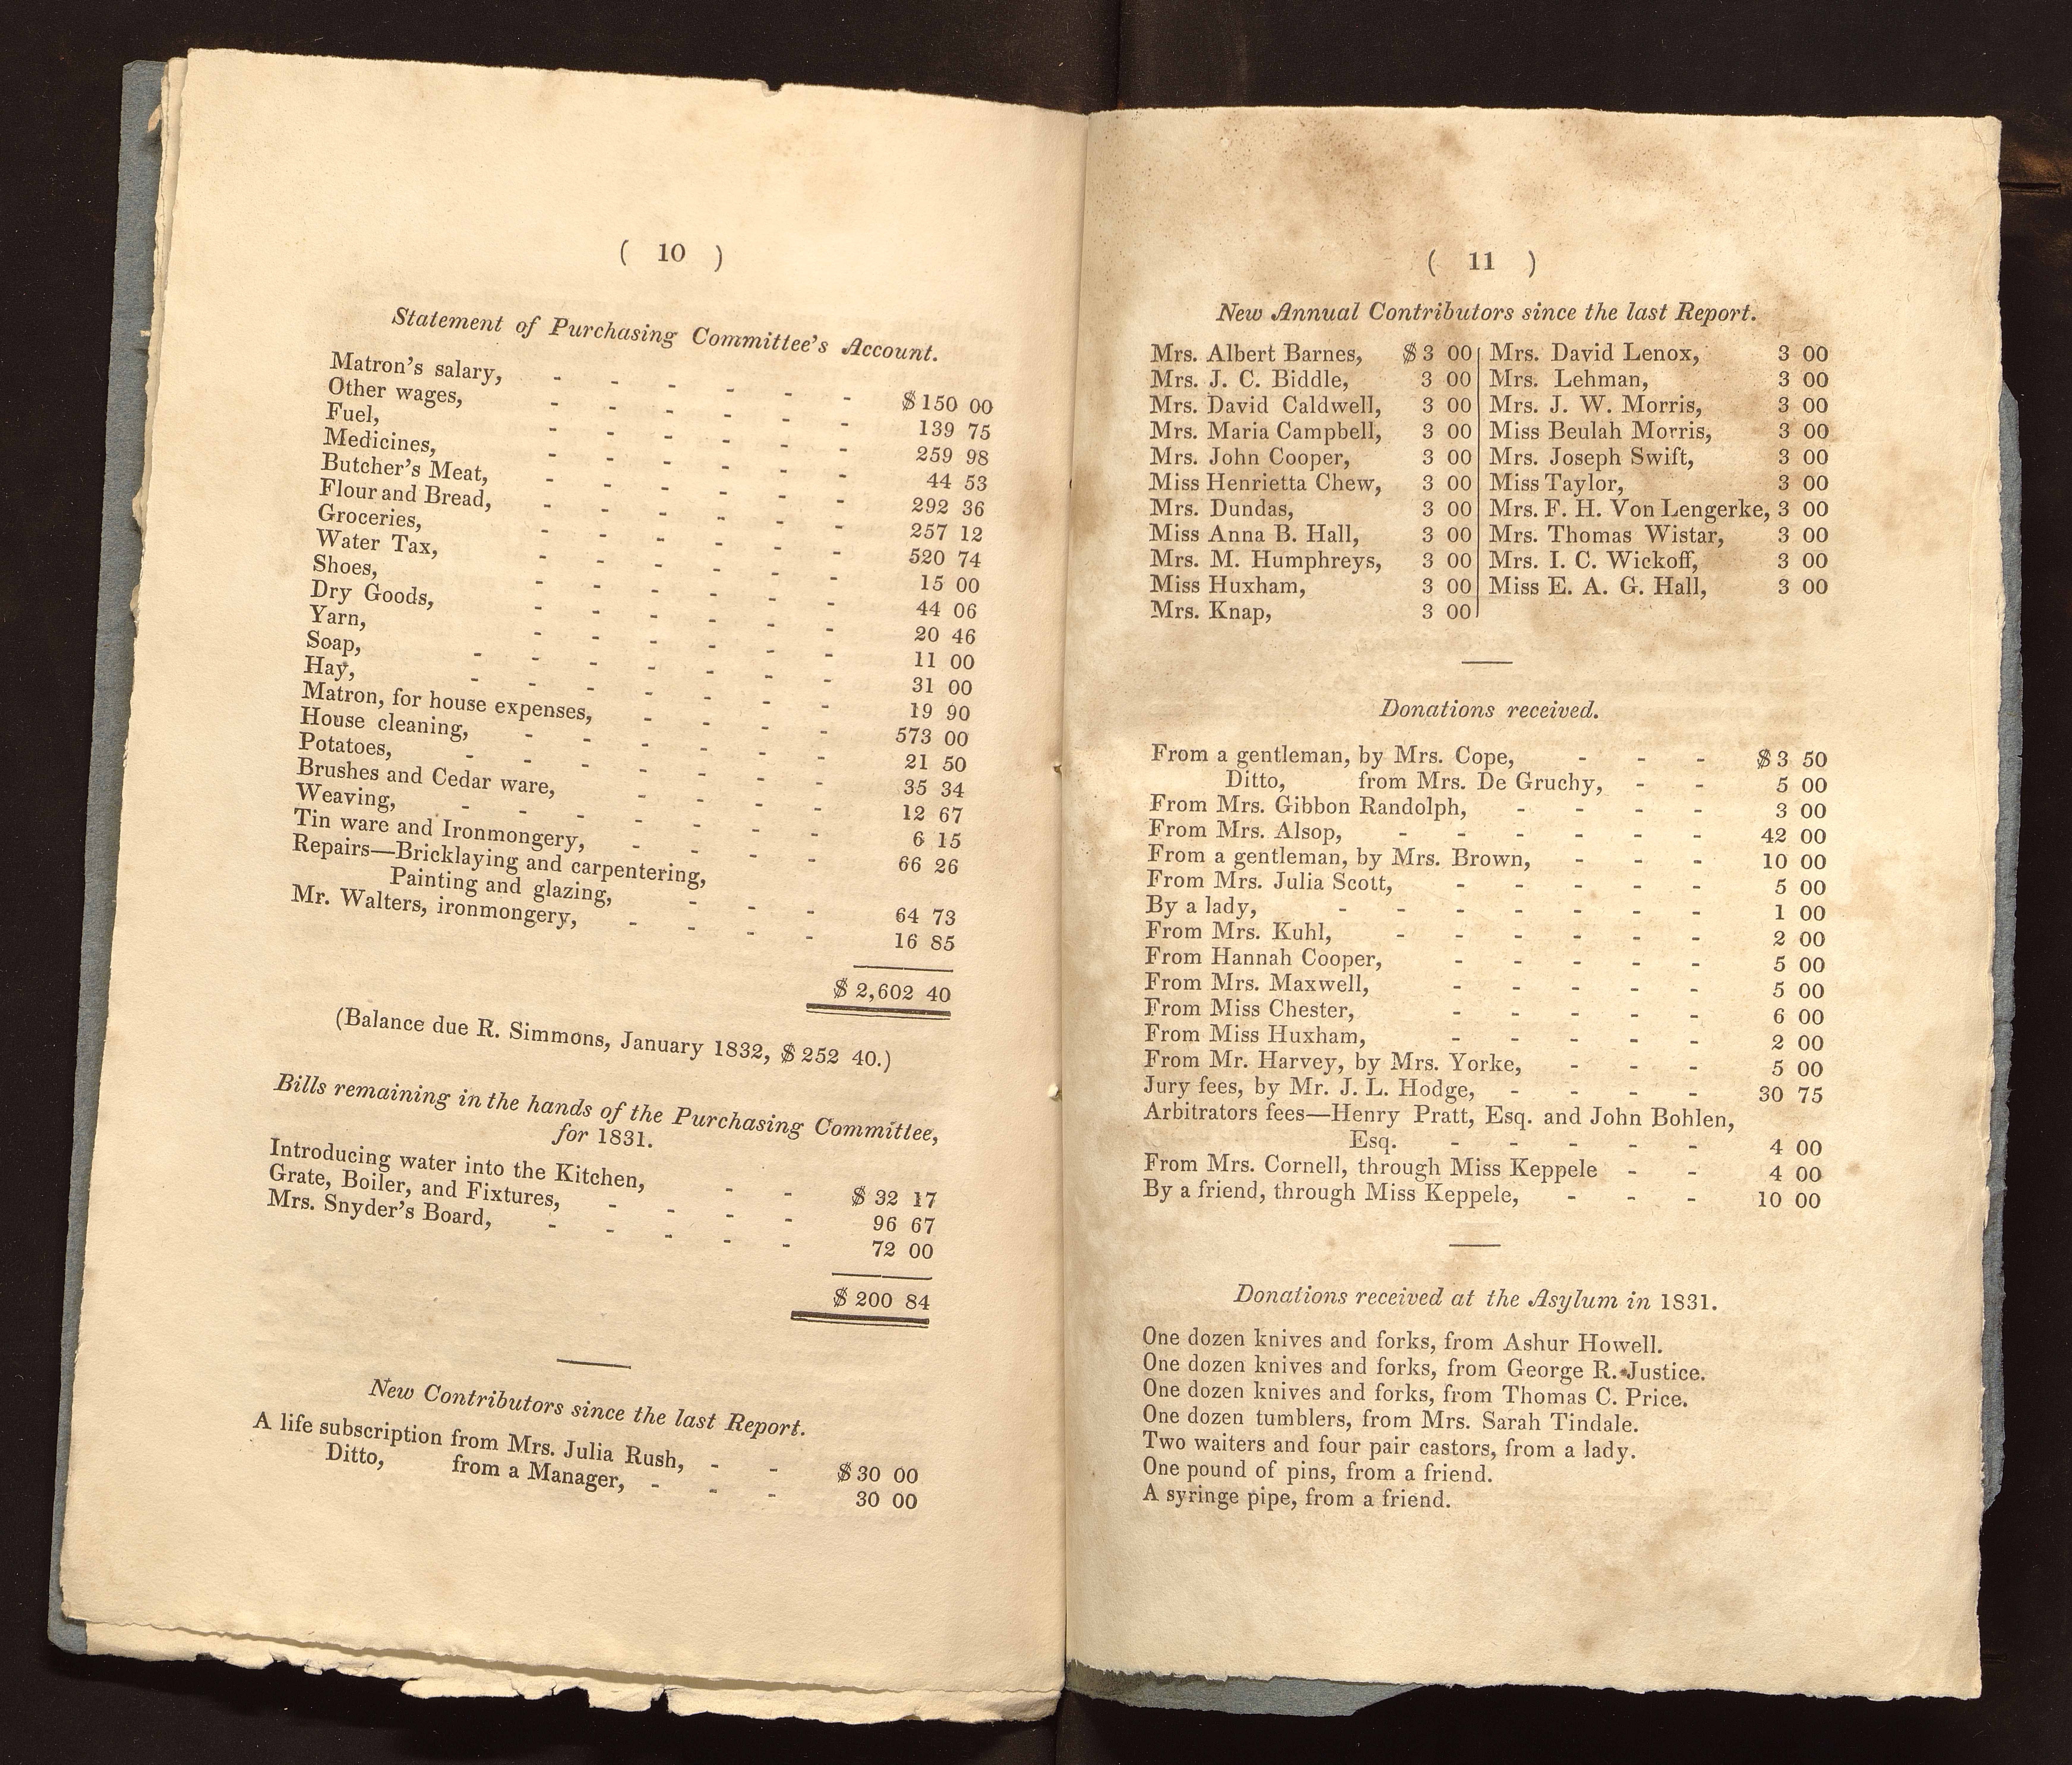 ( 10 )
Statement of Purchasing Committee's Account.
Matron's salary, - - - - - - $150 00
Other wages, - - - - - - 139 75
Fuel, - - - - - - 259 98
Medicines, - - - - - - 44 53
Butcher's Meat, - - - - - - 292 36
Flour and Bread, - - - - - - 257 12
Groceries, - - - - - - 520 74
Water Tax, - - - - - - 15 00
Shoes, - - - - - - 44 06
Dry Goods, - - - - - - 20 46
Yarn, - - - - - - - 11 00
Soap, - - - - - - - 31 00
Hay, - - - - - - - 19 90
Matron, for house expenses, - - - - 573 00
House cleaning, - - - - - - 21 50
Potatoes, - - - - - - - 35 34
Brushes and Cedar ware, - - - - 12 67
Weaving, - - - - - - - 6 15
Tin ware and Ironmongery, - - - - 66 26
Repairs—Bricklaying and carpentering,
Painting and glazing, - - - 64 73
Mr. Walters, ironmongery, - - - - 16 85
$ 2,602 40
(Balance due R. Simmons, January 1832, $ 252 40.)
Bills remaining in the hands of the Purchasing Committee,
for 1831.
Introducing water into the Kitchen, - - $ 32 17
Grate, Boiler, and Fixtures, - - - - 96 67
Mrs. Snyder's Board, - - - - - 72 00
$ 200 84
New Contributors since the last Report.
A life subscription from Mrs. Julia Rush, - - $30 00
Ditto, from a Manager, - - - 30 00
( 11 )
New Annual Contributors since the last Report.
Mrs. Albert Barnes, $3 00 Mrs. David Lenox, 3 00
Mrs. J. C. Biddle, 3 00 Mrs. Lehman, 3 00
Mrs. David Caldwell, 3 00 Mrs. J. W. Morris, 3 00
Mrs. Maria Campbell, 3 00 Miss Beulah Morris, 3 00
Mrs. John Cooper, 3 00 Mrs. Joseph Swift, 3 00
Miss Henrietta Chew, 3 00 Miss Taylor, 3 00
Mrs. Dundas, 3 00 Mrs. F. H. Von Lengerke, 3 00
Miss Anna B. Hall, 3 00 Mrs. Thomas Wistar, 3 00
Mrs. M. Humphreys, 3 00 Mrs. I. C. Wickoff, 3 00
Miss Huxham, 3 00 Miss E. A. G. Hall, 3 00
Mrs. Knap, 3 00
Donations received.
From a gentleman, by Mrs. Cope, - - - $3 50
Ditto, from Mrs. De Gruchy, - - 5 00
From Mrs. Gibbon Randolph, - - - - 3 00
From Mrs. Alsop, - - - - - - 42 00
From a gentleman, by Mrs. Brown, - - - 10 00
From Mrs. Julia Scott, - - - - - 5 00
By a lady, - - - - - - - 1 00
From Mrs. Kuhl, - - - - - - 2 00
From Hannah Cooper, - - - - - 5 00
From Mrs. Maxwell, - - - - - 5 00
From Miss Chester, - - - - - 6 00
From Miss Huxham, - - - - - 2 00
From Mr. Harvey, by Mrs. Yorke, - - - 5 00
Jury fees, by Mr. J. L. Hodge, - - - - 30 75
Arbitrators fees—Henry Pratt, Esq. and John Bohlen,
Esq. - - - - - 4 00
From Mrs. Cornell, through Miss Keppele - - 4 00
By a friend, through Miss Keppele, - - - 10 00
Donations received at the Asylum in 1831.
One dozen knives and forks, from Ashur Howell.
One dozen knives and forks, from George R. Justice.
One dozen knives and forks, from Thomas C. Price.
One dozen tumblers, from Mrs. Sarah Tindale.
Two waiters and four pair castors, from a lady.
One pound of pins, from a friend.
A syringe pipe, from a friend.